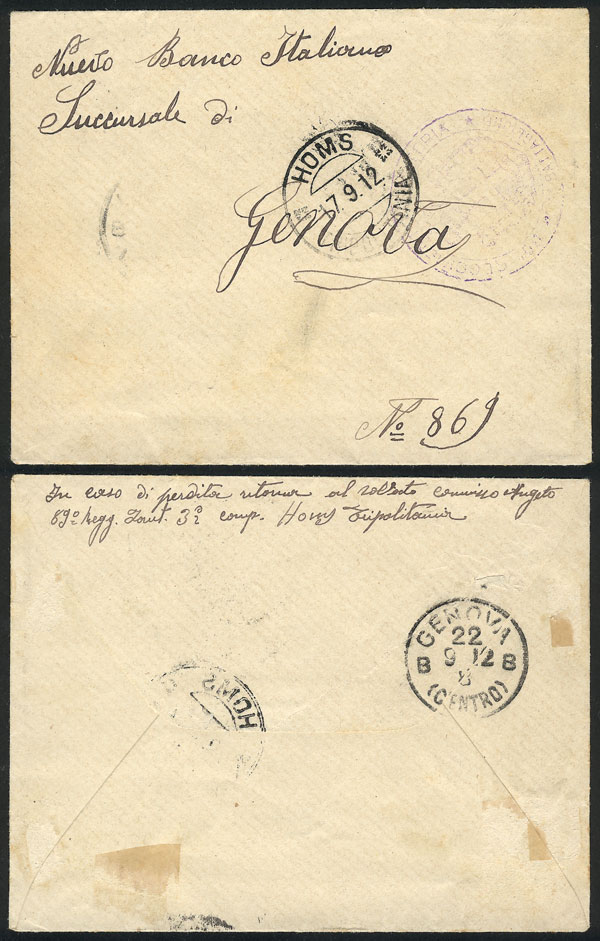 Nuevo Banco Italiano
Succursale di
HOMS
7.9.12
Genova
No 869
In caso di perdita ritorna al soldato Camisso Angelo
89º Regg. Fant. 3ª comp. Homs Tripolitania
GENOVA
22
B 9 12 B
8
(CENTRO)
HOMS